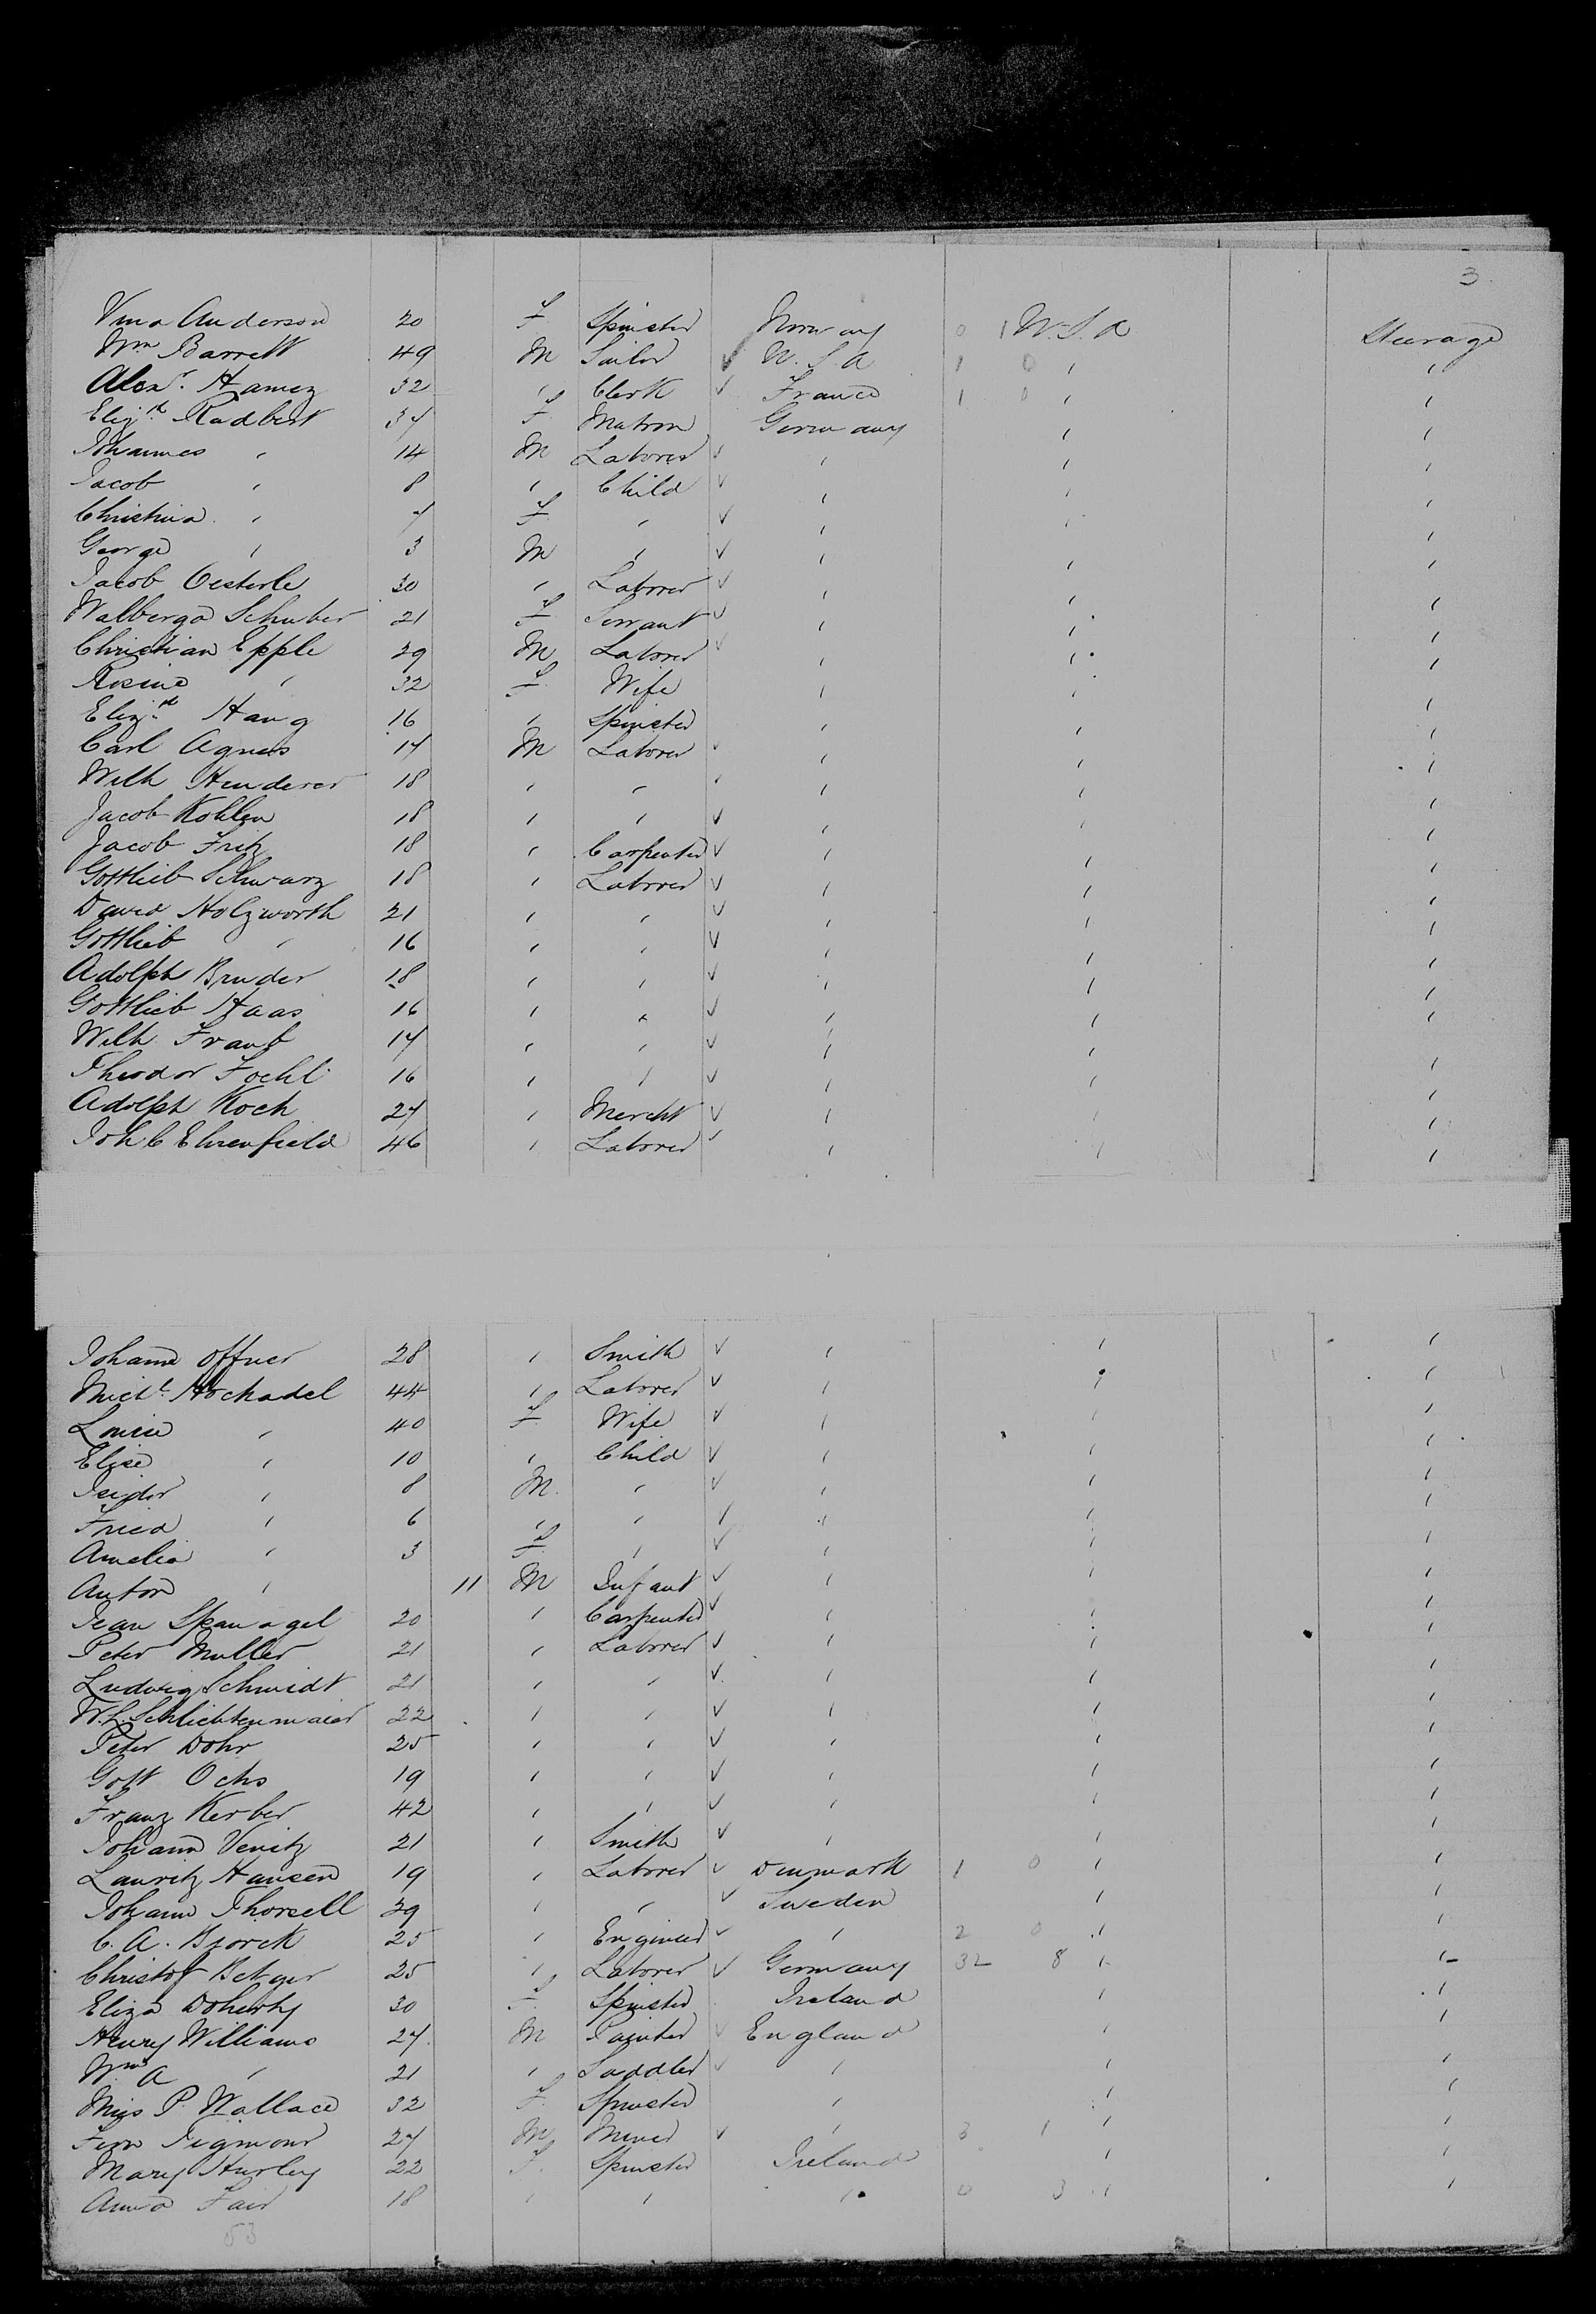 3
Vina Anderson 20 F Spinster Norway 0 1 U.S.A Steerage
Wm Barrett 49 M Sailor ✓ U.S.A 1 0 " "
Alexr. Hamez 32 " Clerk ✓ France 1 0 " "
Elizth Radbert 37 F Matron Germany " "
Johannes " 14 M Laborer ✓ " " "
Jacob " 8 " Child ✓ " " "
Christina " 7 F " ✓ " " "
George " 3 M " ✓ " " "
Jacob Oesterle 30 " Laborer ✓ " " "
Walberga Schuber 21 F Servant ✓ " " "
Christian Epple 29 M Laborer ✓ " " "
Rosine " 32 F Wife " " "
Elizth Haug 16 " Spinster " " "
Carl Agnes 17 M Laborer ✓ " " "
Wilh Henderer 18 " " ✓ " " "
Jacob Kohler 18 " " ✓ " " "
Jacob Fritz 18 " Carpenter ✓ " " "
Gottlieb Schwarz 18 " Laborer ✓ " " "
David Holzworth 21 " " ✓ " " "
Gottlieb " 16 " " ✓ " " "
Adolph Bruder 18 " " ✓ " " "
Gottlieb Haas 16 " " ✓ " " "
Wilh Traub 17 " " ✓ " " "
Theodor Foehl 16 " " ✓ " " "
Adolph Koch 27 " Mercht ✓ " " "
Joh C Ehrenfield 46 " Laborer ✓ " " "
Johann Offner 28 " Smith ✓ " " "
Michl. Hochadel 44 " Laborer ✓ " " "
Louise " 40 F Wife ✓ " " "
Elise " 10 " Child ✓ " " "
Isidor " 8 M " ✓ " " "
Fried " 6 " " ✓ " " "
Amelia " 3 F " ✓ " " "
Anton " 11 M Infant ✓ " " "
Jean Spanagel 20 " Carpenter ✓ " " "
Peter Muller 21 " Laborer ✓ " " "
Ludwig Schmidt 21 " " ✓ " " "
W.L. Schlichtenmaier 22 " " ✓ " " "
Peter Dohr 25 " " ✓ " " "
Gott Ochs 19 " " ✓ " " "
Franz Kerber 42 " " ✓ " " "
Johann Venitz 21 " Smith ✓ " " "
Lauritz Hansen 19 " Laborer ✓ Denmark 1 0 " "
Johann Thorsell 29 " " ✓ Sweden " "
C. A. Bjorck 25 " Engineer ✓ " 2 0 " "
Christof Betger 25 " Laborer ✓ Germany 32 8 " "
Eliza Doherty 30 F Spinster Ireland " "
Henry Williams 27 M Painter ✓ England " "
Wm A " 21 " Saddler ✓ " " "
Miss P. Wallace 32 F Spinster " " "
27 M Miner ✓ " 3 1 " "
Mary Hurley 22 F Spinster Ireland " "
Anna Fair 18 " " " 0 3 " "
53